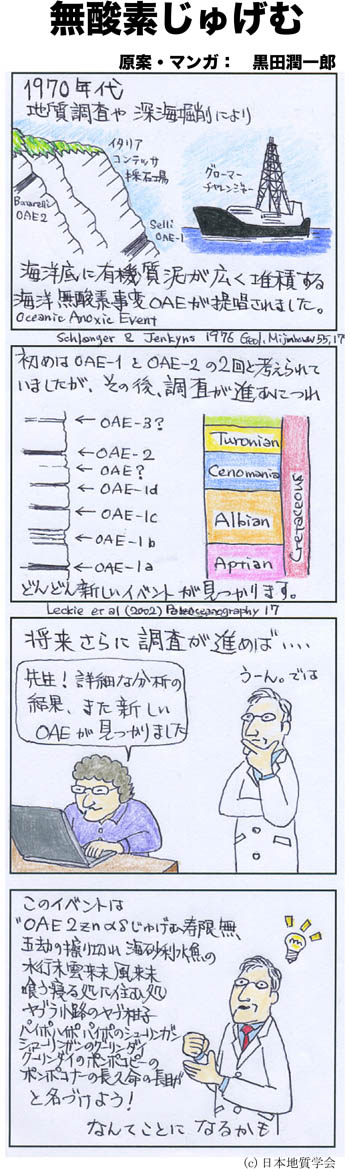 無酸素じゅげむ
原案・マンガ： 黒田潤一郎
1970年代
地質調査や深海掘削により
イタリア
コンテッサ
採石場
Bonarelli
OAE2
Selli
OAE-1
グローマー
チャレンジャー
海洋底に有機質泥が広く堆積する
海洋無酸素事変OAEが提唱されました。
Oceanic Anoxic Event
Schlanger & Jenkyns 1976 Geol. Mijnbouw 55, 17
初めはOAE-1とOAE-2の2回と考えられて
いましたが、その後、調査が進むにつれ
←OAE-3?
←OAE-2
←OAE?
←OAE-1d
←OAE-1c
←OAE-1b
←OAE-1a
Turonian
Cenomanian
Albian
Aptian
Cretaceous
どんどん新しいイベントが見つかります。
Leckie et al (2002) Paleoceanography 17
将来さらに調査が進めば・・・・
先生！詳細な分析の
結果、また新しい
OAEが見つかりました
うーん。では
このイベントは
"OAE2znαδじゅげむ寿限無
五劫の擦り切れ海砂利水魚の
水行末雲来末風来末
喰う寝る処に住む処
ヤブラ小路のヤブ柑子
パイポパイポパイポのシューリンガン
シューリンガンのグーリンダイ
グーリンダイのポンポコピーの
ポンポコナーの長久命の長助"
と名づけよう！
なんてことになるかも
(c) 日本地質学会